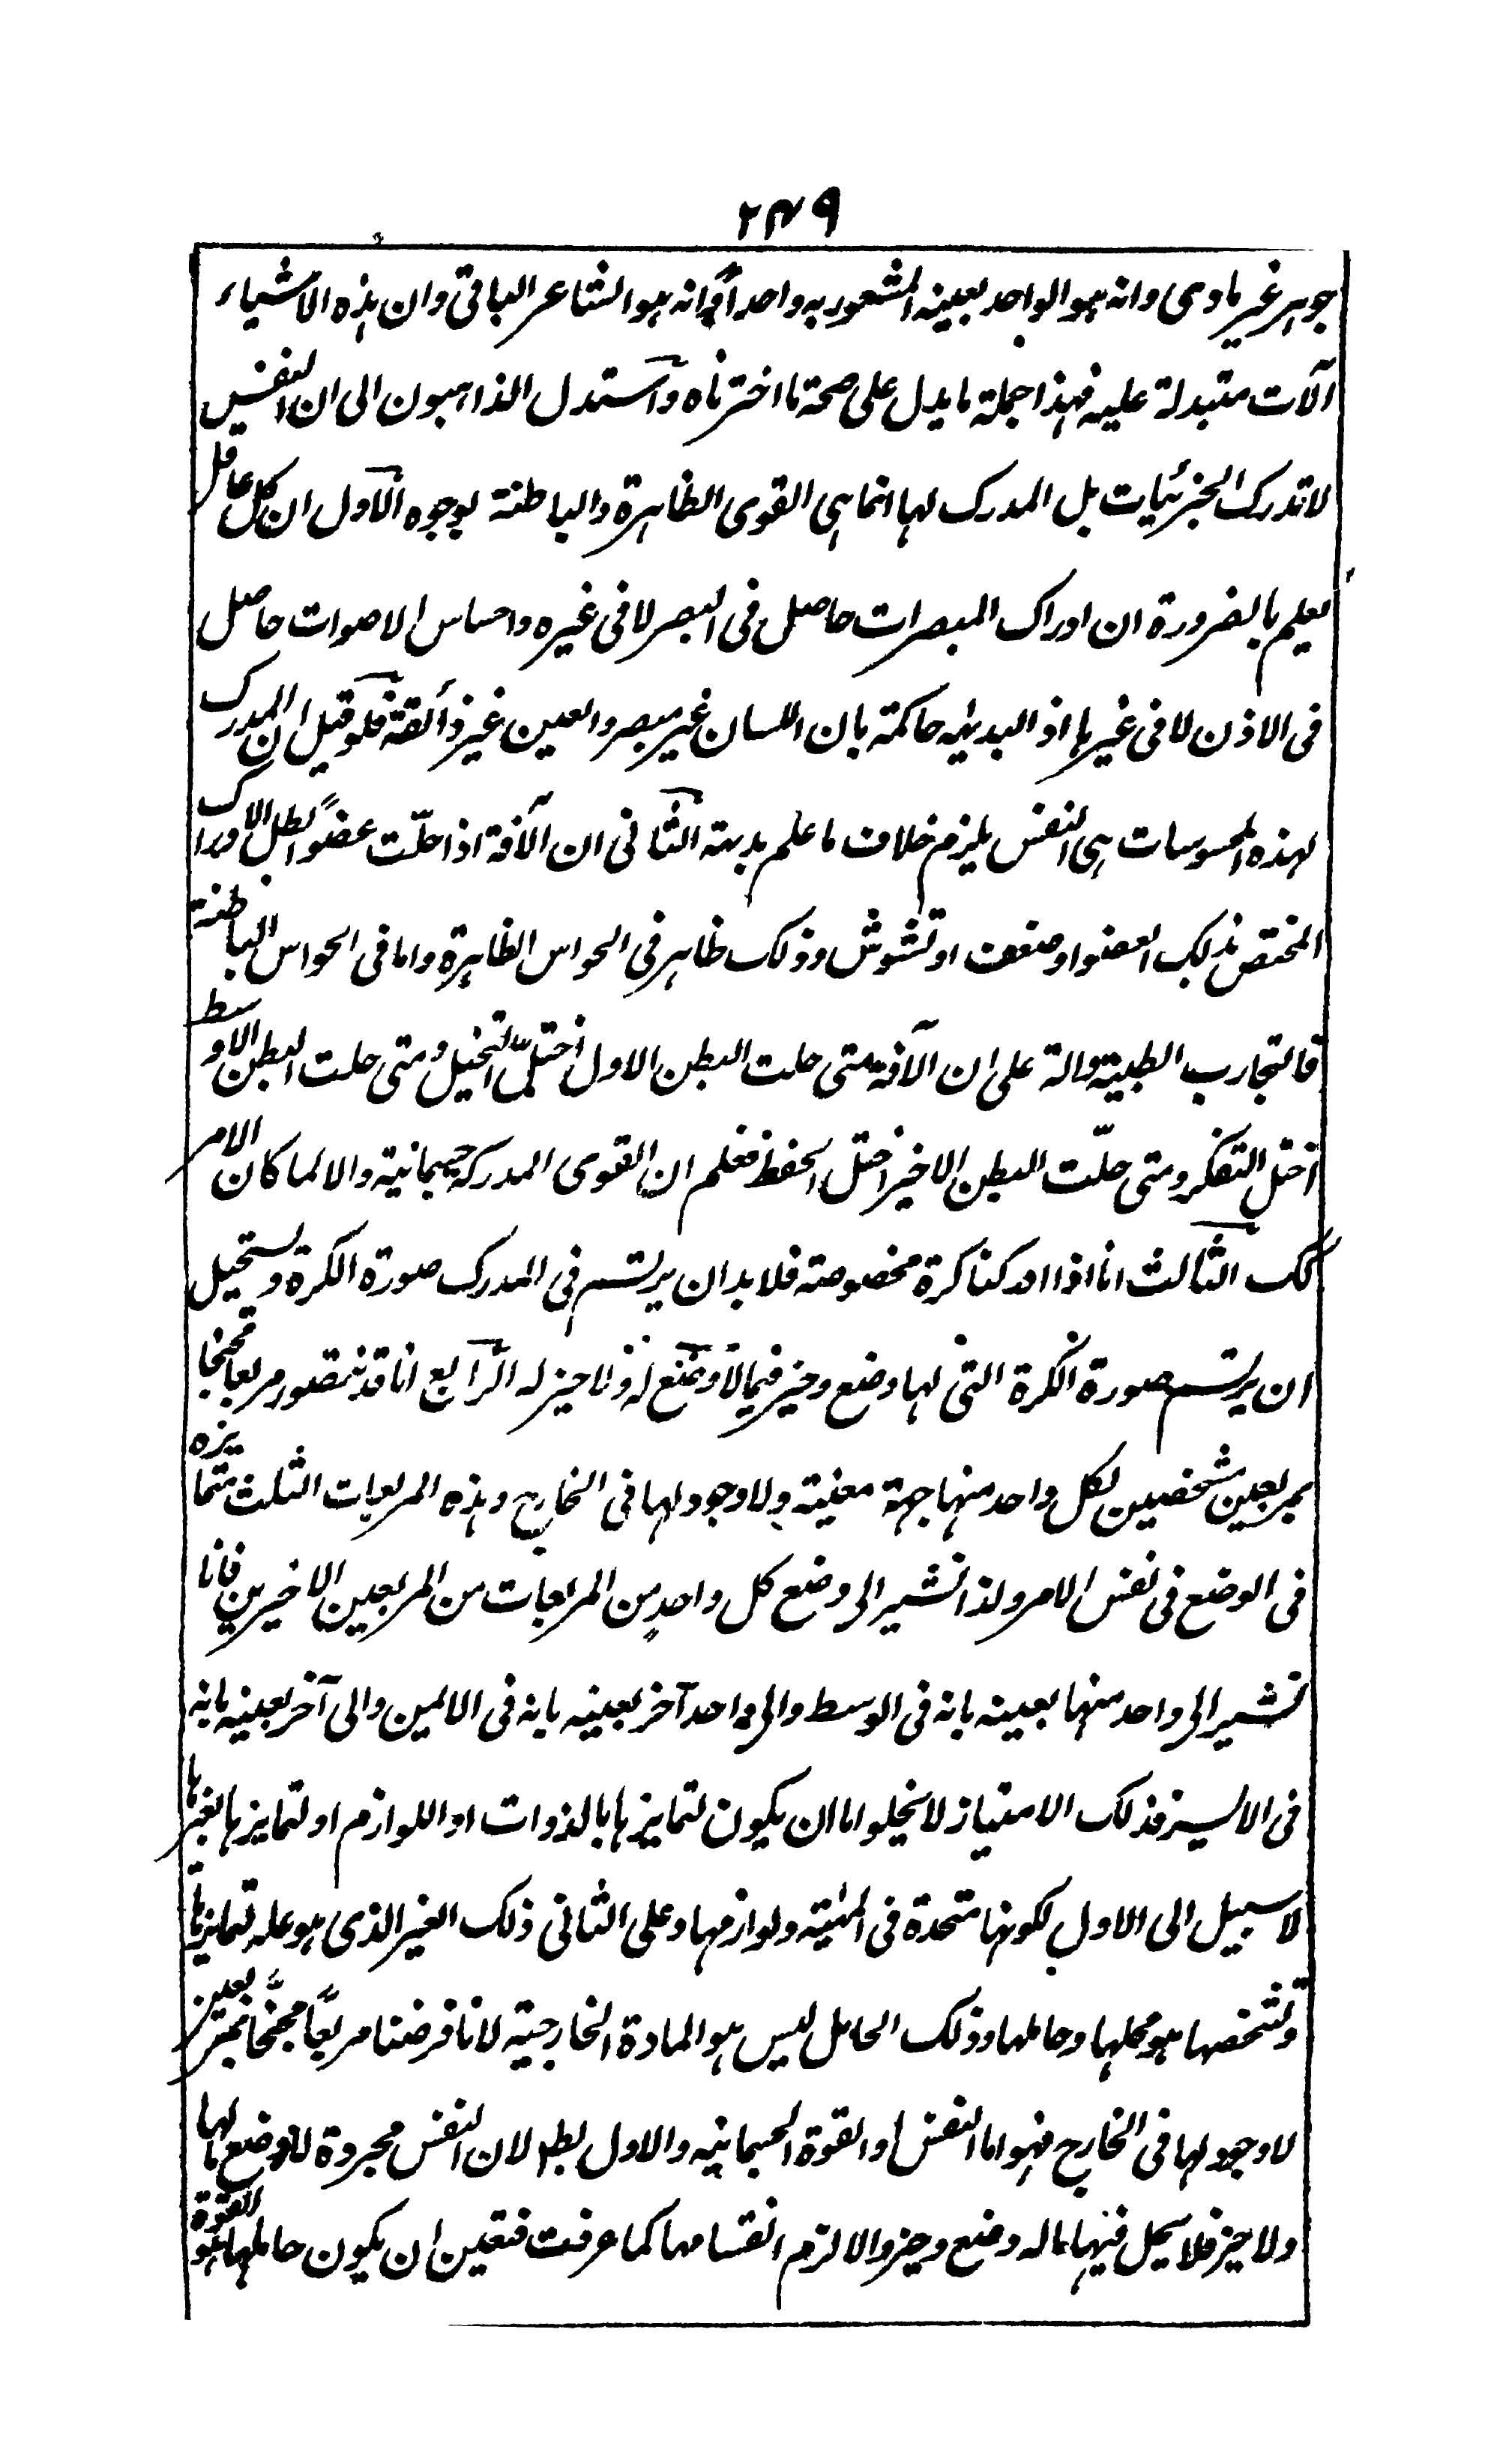 ٢٤٩
جوهر غير مادى وانه هو الواحد بعينه المشعور به واحدا وانه هو الشاعر الباقى وان هذه الاشياء
آلات متبدلة عليه فهذا جملة ما يدل على صحة ما اخترناه واستدل الذاهبون الى ان النفس
لا تدرك الجزئيات بل المدرك لها انما هى القوى الظاهرة والباطنة بوجوه الاول ان كل عاقل
يعلم بالضرورة ان ادراك المبصرات حاصل فى البصر لا فى غيره واحساس الاصوات حاصل
فى الاذن لا فى غيرها اذ البديهة حاكمة بان اللسان غير مبصر والعين غير ذائقة فلو قيل ان المدرك
لهذه المحسوسات هى النفس يلزم خلاف ما علم بديهة الثانى ان الآفة اذا حلّت عضوًا بطل الادراك
المختص بذلك العضو او ضعف او تشوش وذلك ظاهر فى الحواس الظاهرة واما فى الحواس الباطنة
فالتجارب الطبية دالة على ان الآفة متى حلت البطن الاول اختلّ التخيل ومتى حلت البطن الاوسط
اختل التفكر ومتى حلّت البطن الاخير اختل الحفظ فعلم ان القوى المدركة جسمانية والا لما كان الامر
كك الثالث انا اذا ادركنا كرة مخصوصة فلا بد ان يرتسم فى المدرك صورة الكرة ويستحيل
ان يرتسم صورة الكرة التى لها وضع وحيز فيما لا وضع له ولا حيز له الرابع انا قد نتصور مربعا مجنحا
بمربعين مشخصين لكل واحد منها جهة معينة ولا وجود لها فى الخارج وهذه المربعات الثلث متمايزه
فى الوضع فى نفس الامر ولذا نشير الى وضع كل واحد من المربعات من المربعين الاخيرين فانا
نشير الى واحد منها بعينه بانه فى الوسط والى واحد آخر بعينه بانه فى اليمين والى آخر بعينه بانه
فى الايسر فذلك الامتياز لا يخلو اما ان يكون لتمايزها بالذوات او اللوازم او لتمايزها بغيرها
لا سبيل الى الاول لكونها متحدة فى المهية ولوازمها وعلى الثانى ذلك الغير الذى هو علة تمايزها
وتشخصها هو محلها وحاملها وذلك الحامل ليس هو المادة الخارجية لانا فرضنا مربعًا مجنّحًا بمربعين
لا وجود لها فى الخارج فهو اما النفس او القوة الجسمانيه والاول بط لان النفس مجردة لا وضع لها
ولا حيز فلا يحل فيها ما له وضع وحيز والا لزم انقسامها كما عرفت فتعين ان يكون حاملها هو القوة